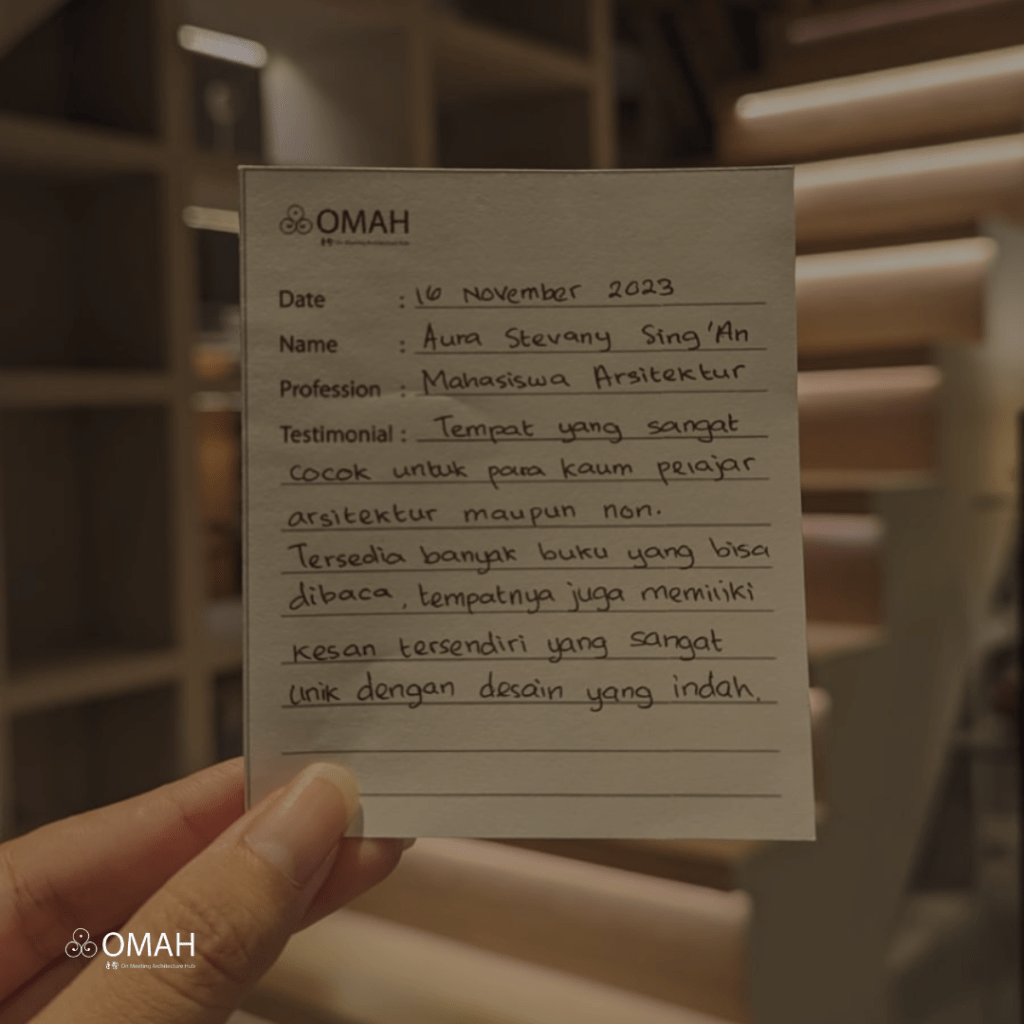 OMAH
On Meeting Architecture Hub
Date : 16 November 2023
Name : Aura Stevany Sing'An
Profession : Mahasiswa Arsitektur
Testimonial : Tempat yang sangat
cocok untuk para kaum pelajar
arsitektur maupun non.
Tersedia banyak buku yang bisa
dibaca, tempatnya juga memiliki
kesan tersendiri yang sangat
unik dengan desain yang indah.
OMAH
On Meeting Architecture Hub